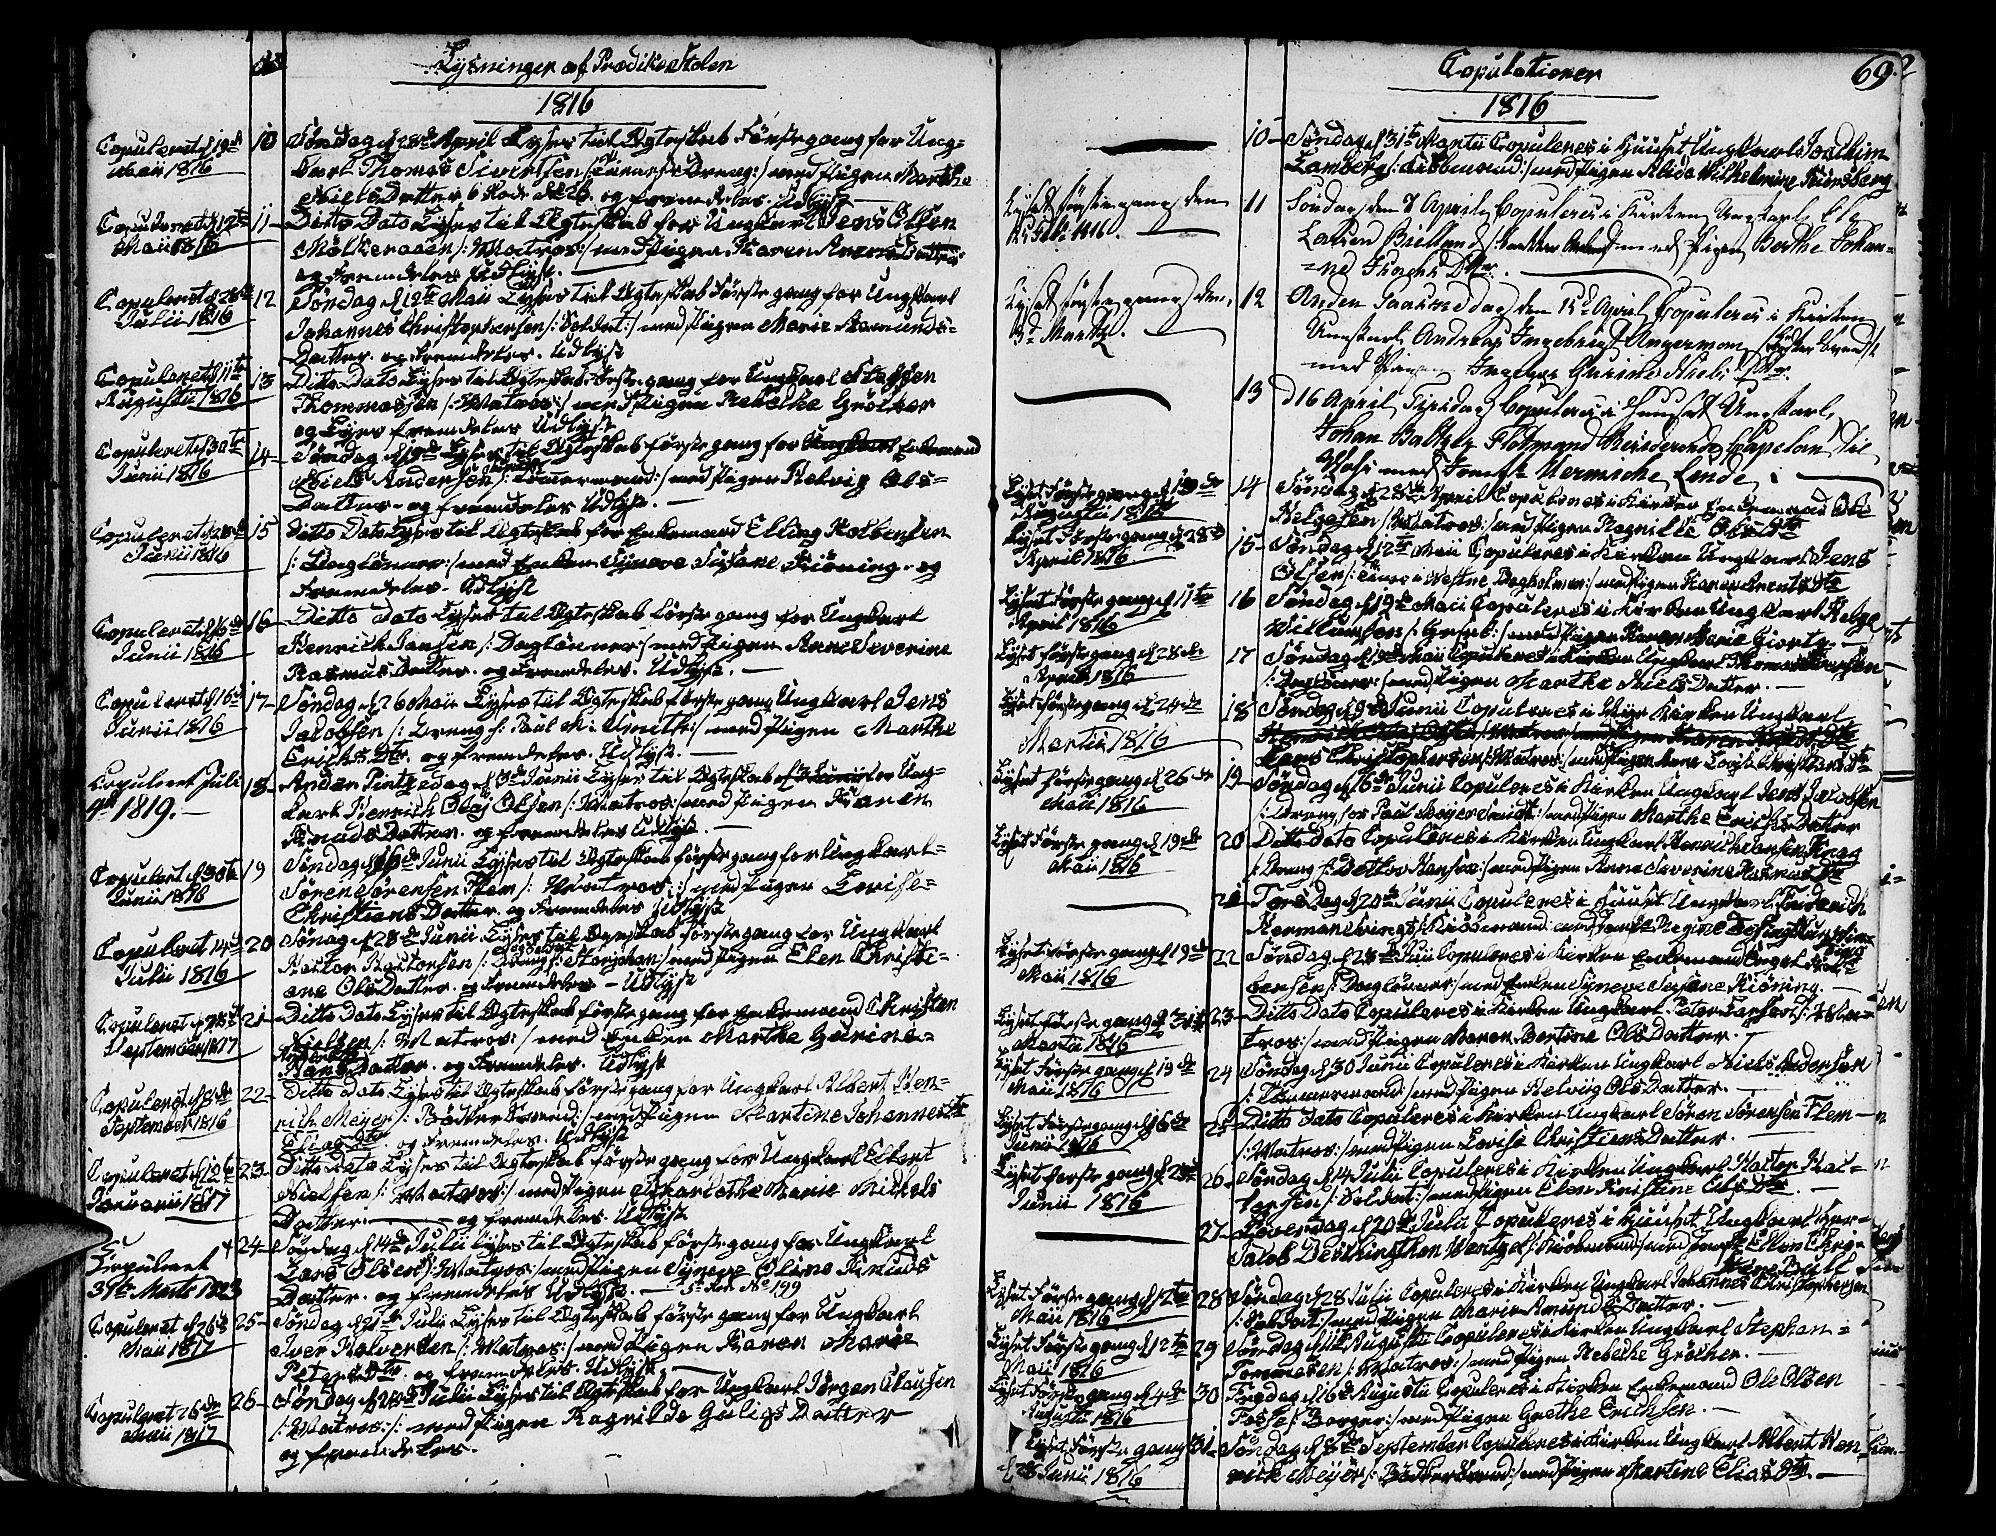 Lysninger af Prædikestolen
1816
Copuleret d 19de
Maii 1816
10 Søndag d 28de April Lyses til Ægteskab Første gang for Ung-
karl Thomas Sivertsen med Pigen Marthe
Niels Datter og fremdeles. Udlyst
Copuleret d 12te
Maii 1816
11 Ditto Dato Lyses til Ægteskab for Ungkarl Jens Olsen
/: Matros :/ med Pigen Karen
og Fremdeles Udlyst.
Copuleret d 28de
Julii 1816
12 Søndag d 12te Maii Lyses til Ægteskab Første gang for Ungkarl
Johannes Christophersen /: Soldat :/ med Pigen Marie Aamunds-
Datter. og fremdeles. Udlyst
Copuleret d 11te
Augustii 1816
13 Ditto Dato Lyses til Ægteskab Første gang for Ungkarl Staffen
Thommassen /: Matros :/ med Pigen Rebekke Gröther
og Lyses fremdeles Udlyst
Copuleret d 30te
Junii 1816
14 Søndag d Lyses til Ægteskab første gang for Ungkarl Enkemand
Niels Andersen /: Tømermand :/ med Pigen Helvig Ols-
Datter - og fremdeles Udlyst. —
Copuleret d 28de
Junii 1816
15 Ditto Dato Lyses til Ægteskab for Enkemand Elling Kolbensen
/: Dagløner :/ med Enken Syneve Susane Kiöning - og
fremdeles - Udlyst
Copuleret d 16de
Junii 1816
16 Ditto Dato Lyses til Ægteskab første gang for Ungkarl
Henrich Jansen /: Dagløner :/ med Pigen Anne Severine
Rasmus Datter. og Fremdeles. Udlyst. —
Copuleret d 16de
Junii 1816
17 Søndag d 26 Maii Lyses til Ægteskab første gang Ungkarl Jens
Jacobsen /: Dreng f: Paul M: Smith :/ med Pigen Marthe
Erichs Dtr. og fremdeles. Udlyst. —
Copuleret Juli
4de 1819. —
18 Anden Pintzedag d 3de Junii Lyses til Ægteskab for Ung-
karl Henrich Olaj Olsen /: Matros :/ med Pigen Karen
Knuds Datter. og fremdeles Udlyst. —
Copulert d 30te
Junii 1816
19 Søndag d 16de Junii Lyses til Ægteskab første gang for Ungkarl
Søren Sörensen Flem /: Matros :/ med Pigen Lovise
Christians Datter. og Fremdeles Udlyst
Copuleret 14de
Julii 1816
20 Sønag d 23de Junii Lyses til Ægteskab første gang for Ungkarl
Hactor Hactorsen med Pigen Elen Christi-
ane Ols Datter. og Fremdeles - Udlyst
Copuleret d 28de
September 1817
21 Ditto Dato Lyses til Ægteskab første gang for Enkemand Christen
Nielsen /: Matros :/ med Enken Marthe Gurine
Hans Datter. og Fremdeles. Udlyst
Copuleret d 8de
September 1816
22 Ditto Dato Lyses til Ægteskab første gang for Ungkarl Albert Hen-
rich Meyer /: Bödker svend :/ med Pigen Martine Johannes
Elias Dtr og Fremdeles. Udlyst
Copuleret d 12te
Januarii 1817
23 Ditto Dato Lyses til Ægteskab første gang for Ungkarl Eckert
Nielsen /: Matros :/ med Pigen Scharlothe Marie Mickels
Datter. — og fremdeles. Udlyst
Copuleret
31te Marts 1823
24 Søndag d 14de Julii Lyses til Ægteskab første gang for Ungkarl
Lars Olsen /: Matros :/ med Pigen Syneve Oline Knuds
Datter. og fremdeles Udlyst. — No 199
Copuleret d 26de
Maii 1817
25 Søndag d 21de Julii Lyses til Ægteskab første gang for Ungkarl
Iver Halversen /: Matros :/ med Pigen Karen Marie
Peters Dtr. og fremdeles. Udlyst
Copuleret 26de
Maii 1817
26 Søndag d Julii Lyses til Ægteskab for Ungkarl Jørgen Clausen
/: Matros :/ med Pigen Ragnilde Guligs Datter
og fremdeles.
Copulationer 69
1816
10 Søndag d 31te Martii Copuleres i Huuset Ungkarl Joachim
Lamberg /: Kiøbmand :/ med Pigen Alida Wilhelmine
Lyset første gang den
Feb. 1816.
11 Søndag den 7 April Copuleres i Kirken Ungkarl Ole
Larsen Bielland med Pigen Berthe Johan-
ne Dtr.
Lyset første gang den
3de Martz.
12 Anden Paaskedag den 15de April Copuleres i Kirken
Ungkarl Andreas Ingebrigt Angerman
med Pigen Ingebor Gurine Niels Dtr.
13 d 16 April Tirsdag Copuleres i Huuset Ungkarl
Johan Baltzer Flotmand Residerende Capelan til
med Jomfr Wermiche Lende
Lyset Første gang d 19de
1816
14 Søndag d 28de April Copuleres i Kirken Enkemand Ole
Helgesen /: Matros :/ med Pigen Ragnille Ols Dtr
Lyset Første gang d 28de
April 1816
15 Søndag d 12te Maii Copuleres i Kirken Ungkarl Jens
Olsen med Pigen Karen Arents Dtr
Lyset Første gang d 11te
April 1816
16 Søndag d 19de Maii Copuleres i Kirken Ungkarl Helge
Willumsen med Pigen Karen Marie Giorts
Lyset Første gang d 28de
April 1816
17 Søndag d 19de Maii Copuleres i Kirken Ungkarl Thomas Iversen
/: Dagløner :/ med Pigen Marthe Niels Datter. —
Lyset Første gang d 24de
Martii 1816
18 Søndag d 9de Junii Copuleres i Kirken Ungkarl
Hans Christophersen /: Matros :/ med Pigen Anne Lovise Christians Dtr
Lyset første gang d 26de
Maii 1816
19 Søndag d 16de Junii Copuleres i Kirken Ungkarl Jens Jacobsen
/: Dreng for Paul Meyer Smidt :/ med Pigen Marthe Erichs Datter
Lyset Første gang d 19de
Maii 1816
20 Ditto Dato Copuleres i Kirken Ungkarl Henrich Jansen Krag
/: Dreng f: Detlov Hansen :/ med Pigen Anne Severine Rasmus Dtr
21 Torsdag d 20de Junii Copuleres i Huuset Ungkarl Friderich
Herman /: Kiøbmand :/ med Jomfr Regine
Lyset Første gang d 19de
Maii 1816
22 Søndag d 23de Junii Copuleres i Kirken Enkemand
bensen /: Dagløner :/ med Enken Syneve Susane Kiöning. —
Lyset første gang d 31te
Martii 1816
23 Ditto Dato Copuleres i Kirken Ungkarl Peter Larsen /: Ma-
tros :/ med Pigen Maren Bertine Ols Datter.
Lyset Første gang d 19de
Maii 1816
24 Søndag d 30 Junii Copuleres i Kirken Ungkarl Niels Andersen
/: Tømermand :/ med Pigen Helvig Ols Datter. —
Lyset Første gang d 16de
Junii 1816
25 Ditto Dato Copuleres i Kirken Ungkarl Sören Sörensen Flem —
/: Matros :/ med Pigen Lovise Christians Datter. —
Lyset første gang d 23de
Junii 1816
26 Søndag d 14 Julii Copuleres i Kirken Ungkarl Hactor Hac-
torsen /: Soldat :/ med Pigen Elen Kristine Ols Dtr. —
27 Løverdag d 20de Julii Copuleres i Huuset Ungkarl
Jacob Wentzel /: Kiøbmand :/ med Jomfr Ellen Chri-
stine Bull
Lyset Første gang d 12te
Maii 1816
28 Søndag d 28 Julii Copuleres i Kirken Ungkarl Johannes Christophersen
/: Soldat :/ med Pigen Marie Amunds Datter. —
Lyset Første gang d 12te
Maii 1816
29 Søndag d 11te Augustii Copuleres i Kirken Ungkarl Stephan
Tommesen /: Matros :/ med Pigen Rebekke Gröther. —
Lyset Første gang d 4de
Augustii 1816
30 Fredag d 16de Augustii Copuleres i Kirken Enkemand Ole Olsen
Fosse /: Borger :/ med Pigen Grethe Erichsen. —
Lyset Første gang
d 23 Junii 1816
31 Søndag d 8de September Copuleres i Kirken Ungkarl Albert Hen-
rick Meyer /: Bödker svend :/ med Pigen Martine Elias Dtr. —